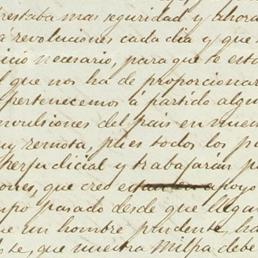 restaba mas seguridad y ahora
a revoluciones cada dia y que
icio necesario, para que te esta
l que nos ha de proporcionar
pertenecemos á partido algu
nvulsiones del pais en nuem
uy remota, pues todos los p
perjudicial y trabajarán p
ores, que creo apoyo
mpo pasado desde que llega
ue un hombre prudente, ha
te, que nuestra Milpa debe